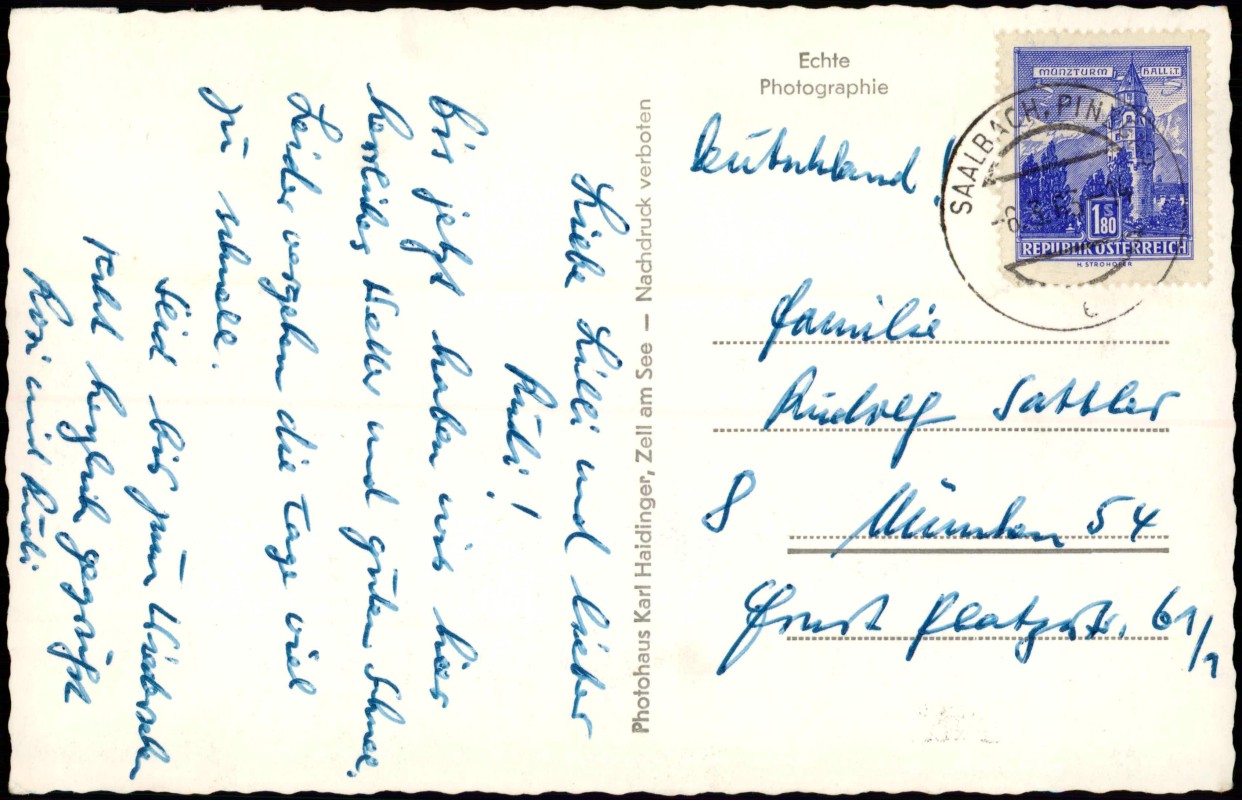 Liebe Lilli und lieber
Rudi!
Bis jetzt haben wir hier
herrliches Wetter und guten Schnee.
Leider vergehen die Tage viel
zu schnell.
Seid bis zum Wiedersehen
recht herzlich gegrüßt
Rosi und Rudi
Photohaus Karl Haidinger, Zell am See — Nachdruck verboten
Echte
Photographie
MÜNZTURM HALL i.T.
SAALBACH, PIN
1 S 80
REPUBLIK ÖSTERREICH
H. STROHOFER
Deutschland!
Familie
Rudolf Sattler
8 München 54
Ernst Platzstr. 61/1